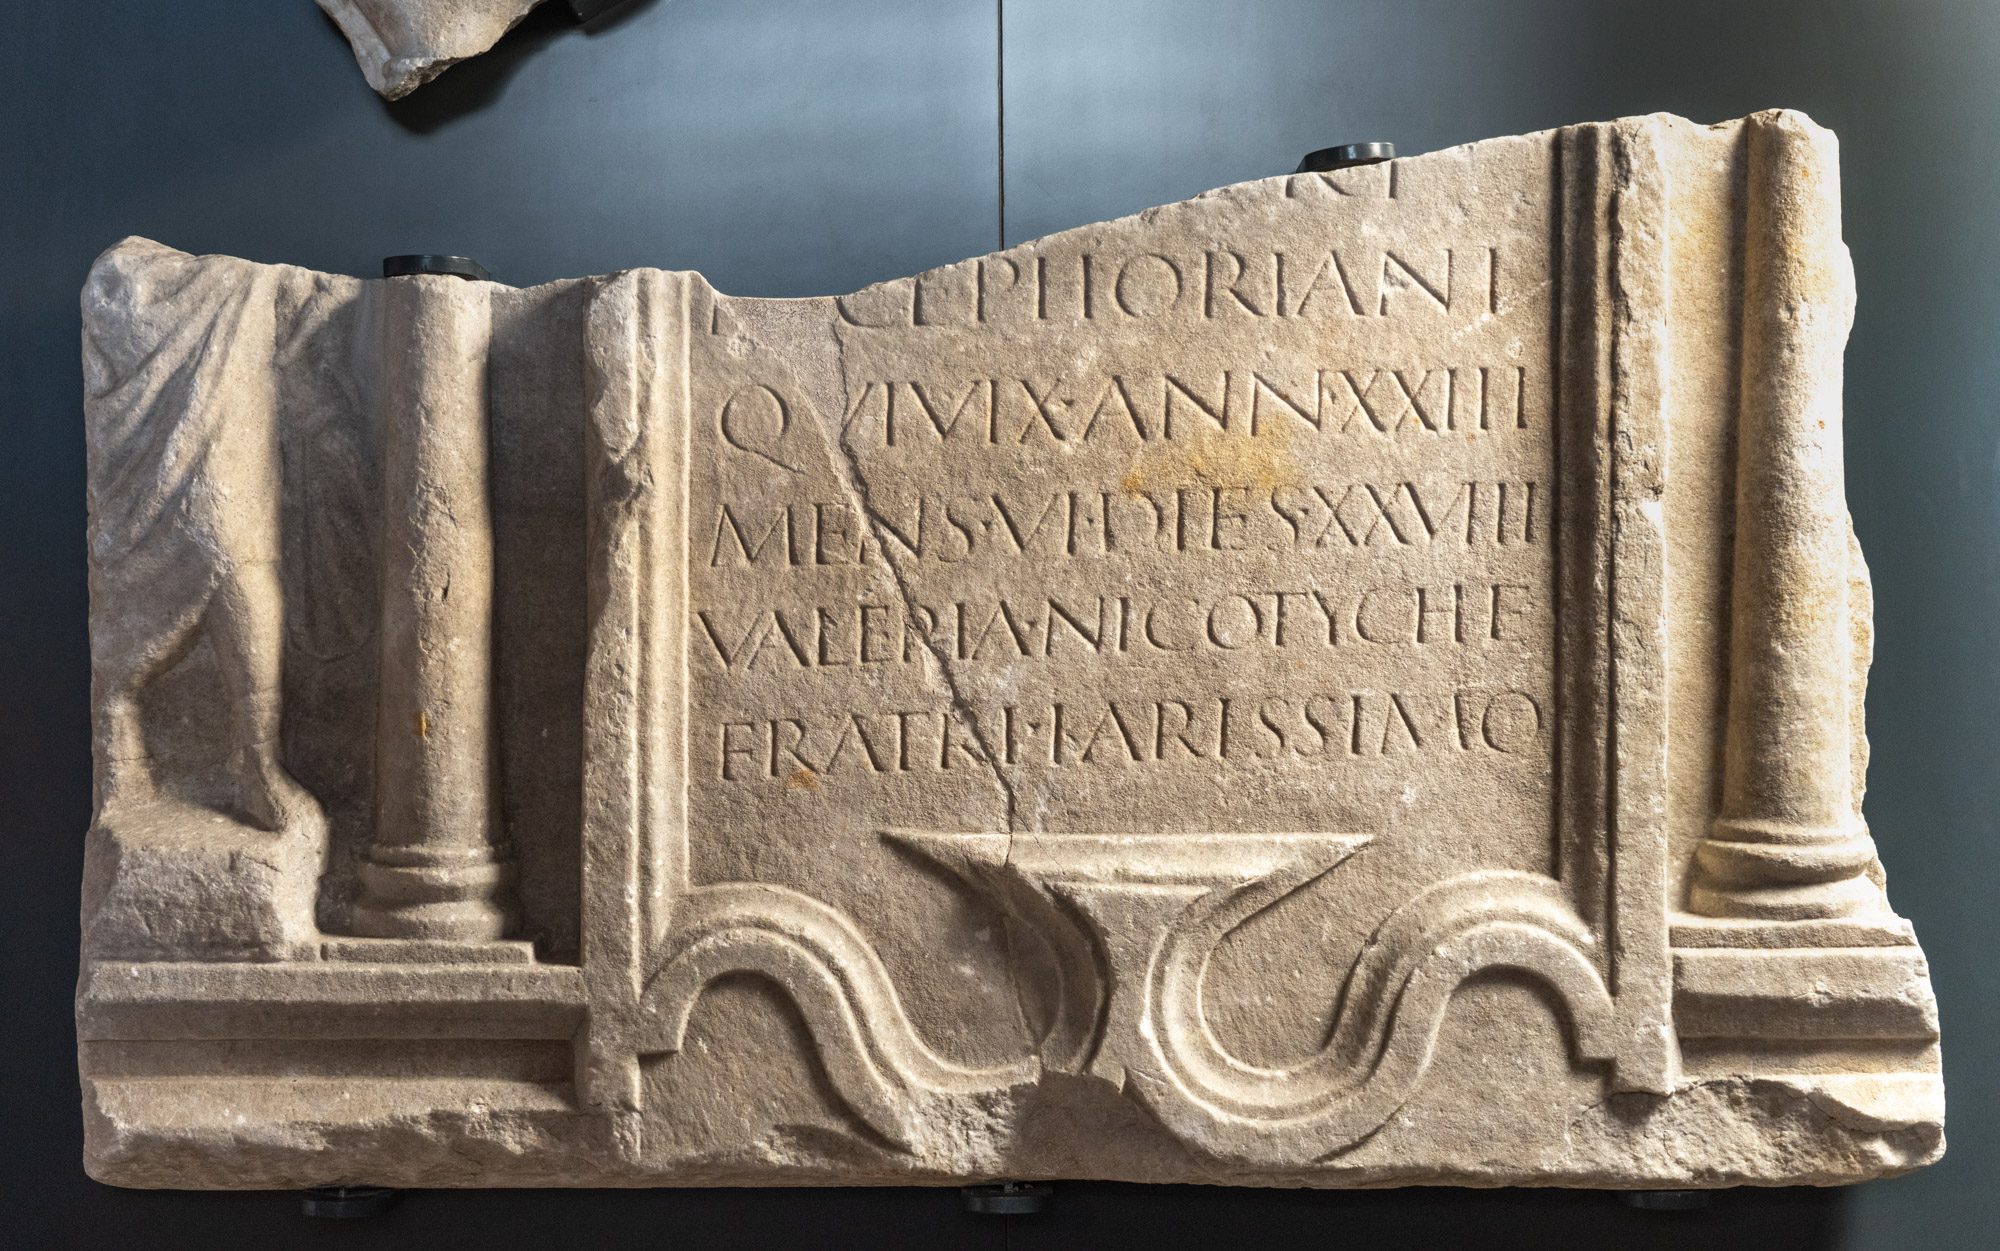 CEPHORIANI
QVI VIX·ANN·XXIII
MENS·VI·DIES·XXVIIII
VALERIA·NICOTYCHE
FRATRI·KARISSIMO